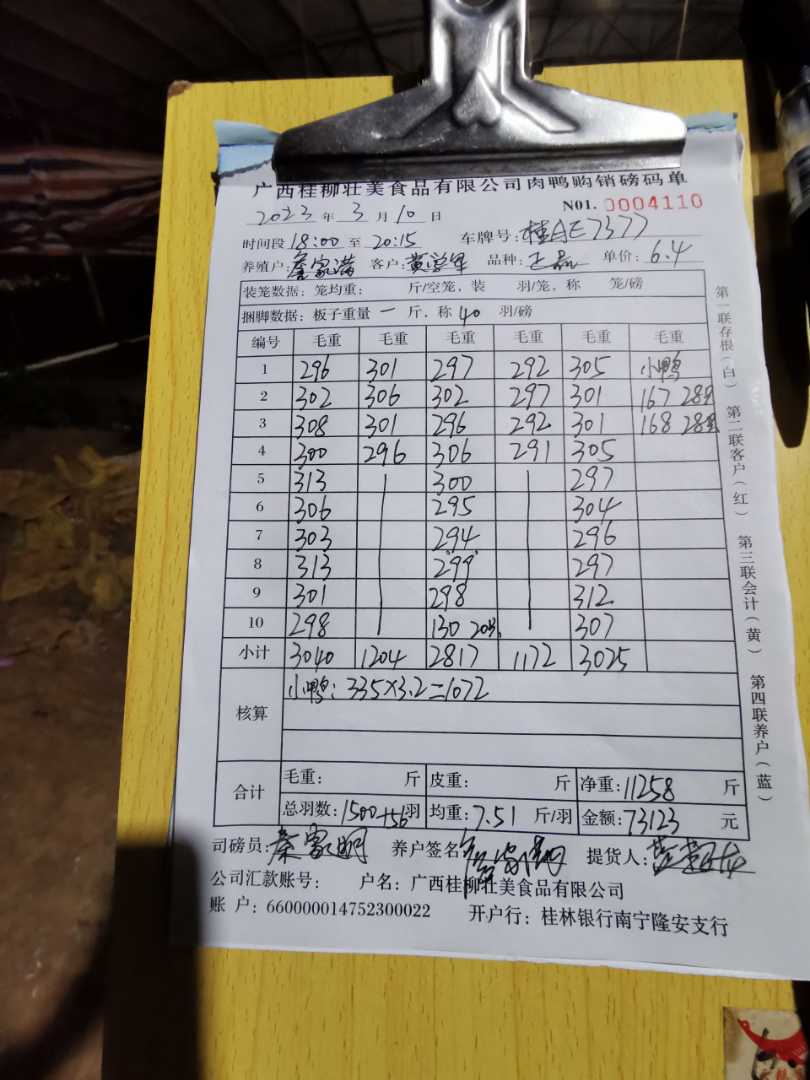 广西桂柳壮美食品有限公司肉鸭购销磅码单
NO1. 0004110
2023 年 3 月 10 日
时间段 18:00 至 20:15 车牌号: 桂AE7377
养殖户: 秦家满 客户: 黄学军 品种: 正品 单价: 6.4
装笼数据: 笼均重: 斤/空笼, 装 羽/笼, 称 笼/磅
捆脚数据: 板子重量 一 斤, 称 40 羽/磅
编号 毛重 毛重 毛重 毛重 毛重 毛重
1 296 301 297 292 305 小鸭
2 302 306 302 297 301 167 28羽
3 308 301 296 292 301 168 28羽
4 300 296 306 291 305
5 313 300 297
6 306 295 304
7 303 294 296
8 313 299 297
9 301 298 312
10 298 130 20羽 307
小计 3040 1204 2817 1172 3025
核算 小鸭: 335×3.2=1072
合计 毛重: 斤 皮重: 斤 净重: 11258 斤
总羽数: 1500+56羽 均重: 7.51 斤/羽 金额: 73123 元
司磅员: 秦家明 养户签名 提货人:
公司汇款账号: 户名: 广西桂柳壮美食品有限公司
账 户: 660000014752300022 开户行: 桂林银行南宁隆安支行
第一联存根(白) 第二联客户(红) 第三联会计(黄) 第四联养户(蓝)